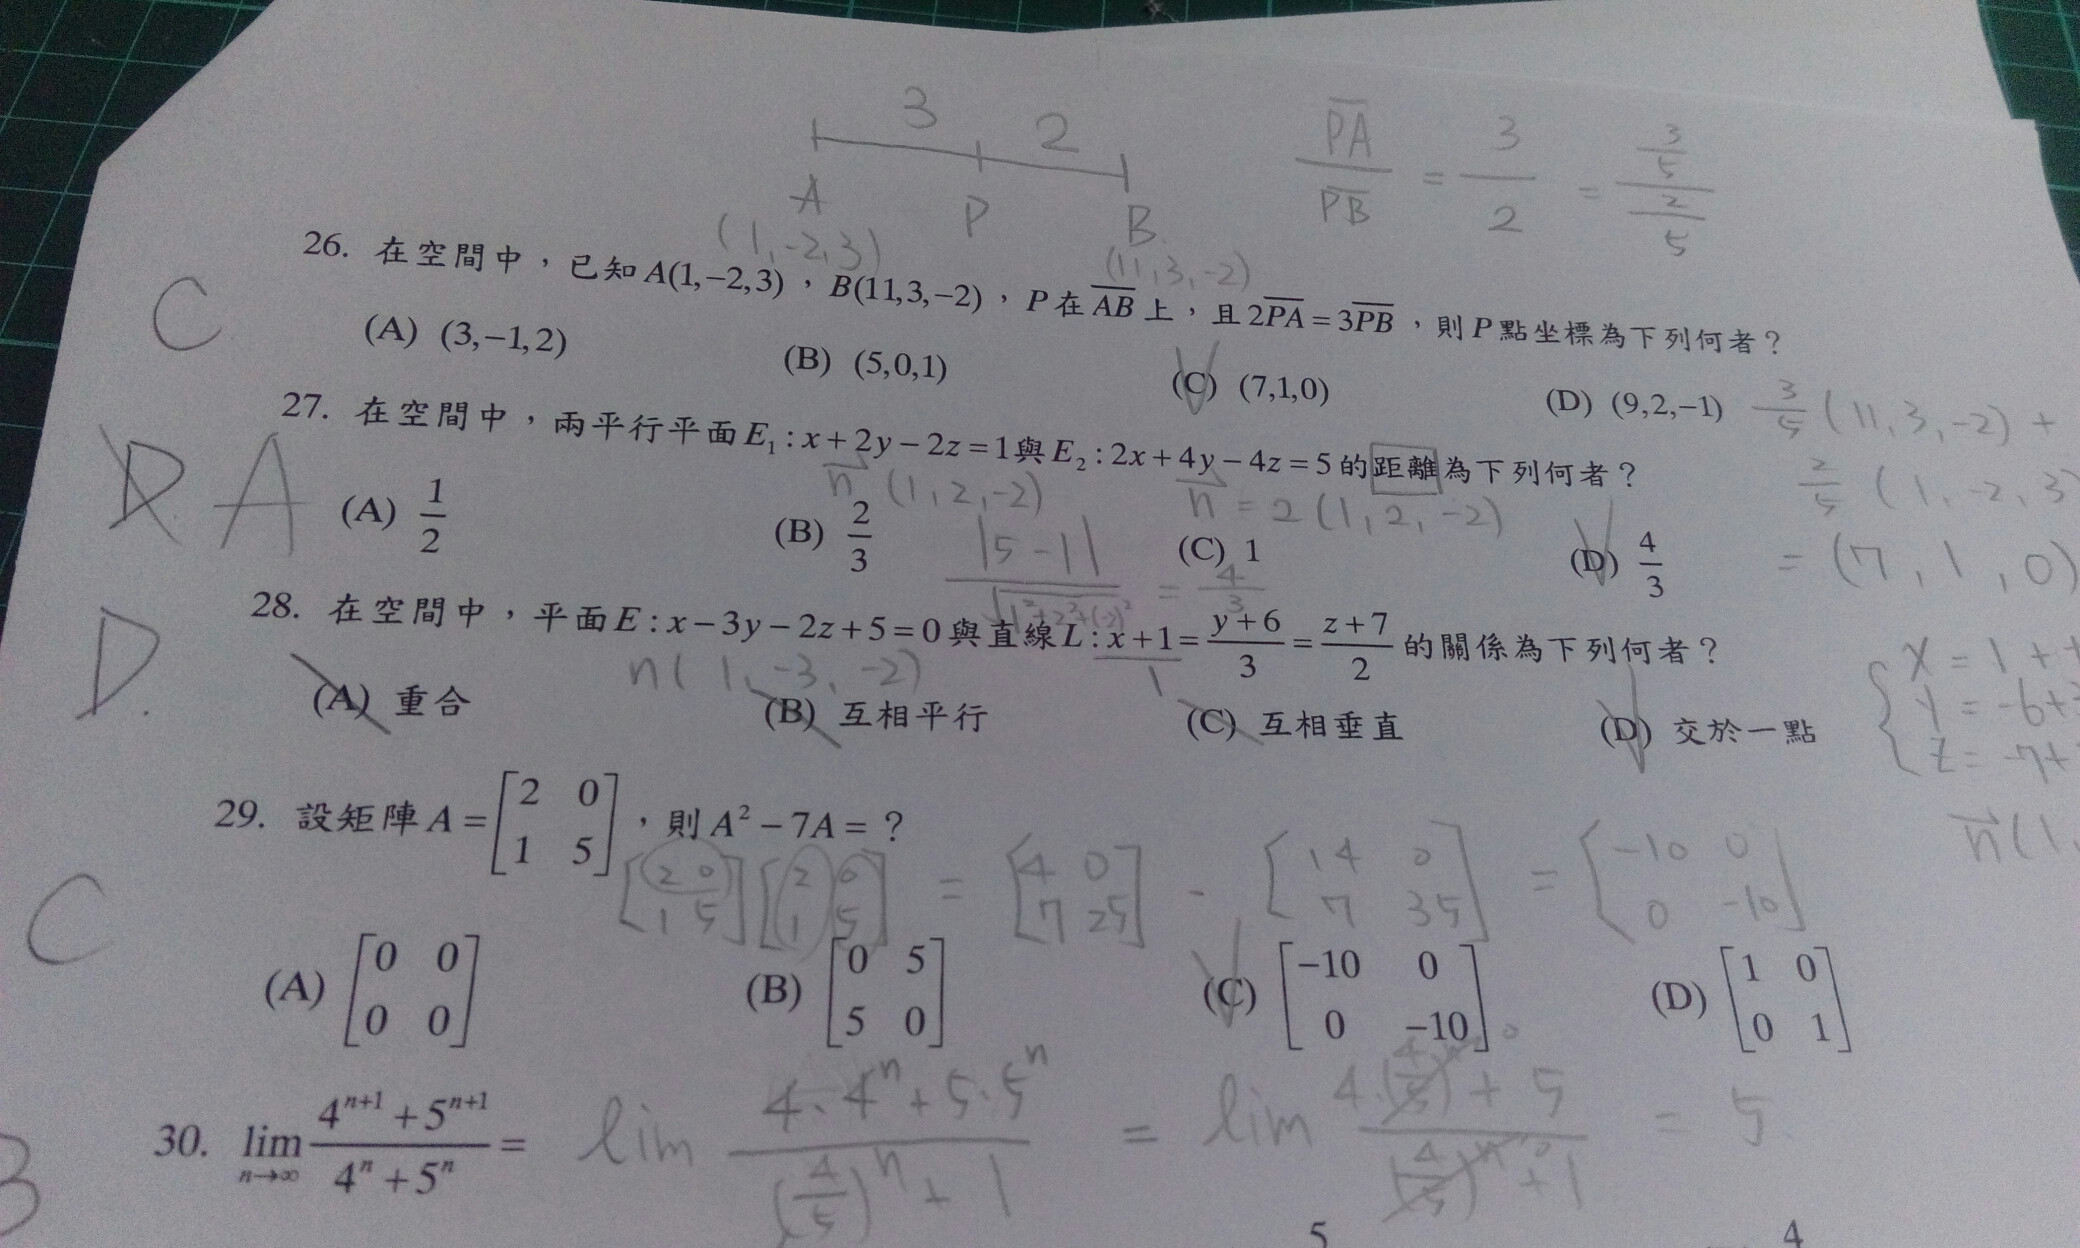 3 2
A P B
PA/PB = 3/2 = (3/5)/(2/5)
(1,-2,3) (11,3,-2)
C
26. 在空間中，已知A(1,−2,3)，B(11,3,−2)，P在AB上，且2PA=3PB，則P點坐標為下列何者？
(A) (3,−1,2) (B) (5,0,1) (C) (7,1,0) (D) (9,2,−1)
3/5 (11,3,-2) +
2/5 (1,-2,3)
= (7,1,0)
D. A
27. 在空間中，兩平行平面E₁:x+2y−2z=1與E₂:2x+4y−4z=5的距離為下列何者？
n (1,2,-2) n = 2(1,2,-2)
(A) 1/2 (B) 2/3 (C) 1 (D) 4/3
|5-1|/√(1²+2²+(-2)²) = 4/3
D.
28. 在空間中，平面E:x−3y−2z+5=0與直線L:x+1=(y+6)/3=(z+7)/2的關係為下列何者？
n(1,-3,-2) 1
(A) 重合 (B) 互相平行 (C) 互相垂直 (D) 交於一點
x = 1+
y = -6+
z = -7+
n(1,
C
29. 設矩陣A=[2 0; 1 5]，則A²−7A=？
[2 0; 1 5][2 0; 1 5] = [4 0; 7 25] - [14 0; 7 35] = [-10 0; 0 -10]
(A) [0 0; 0 0] (B) [0 5; 5 0] (C) [−10 0; 0 −10] (D) [1 0; 0 1]
B
30. lim n→∞ (4ⁿ⁺¹+5ⁿ⁺¹)/(4ⁿ+5ⁿ)= lim (4·4ⁿ+5·5ⁿ)/((4/5)ⁿ+1) = lim (4·(4/5)ⁿ+5)/((4/5)ⁿ+1) = 5.
5 4